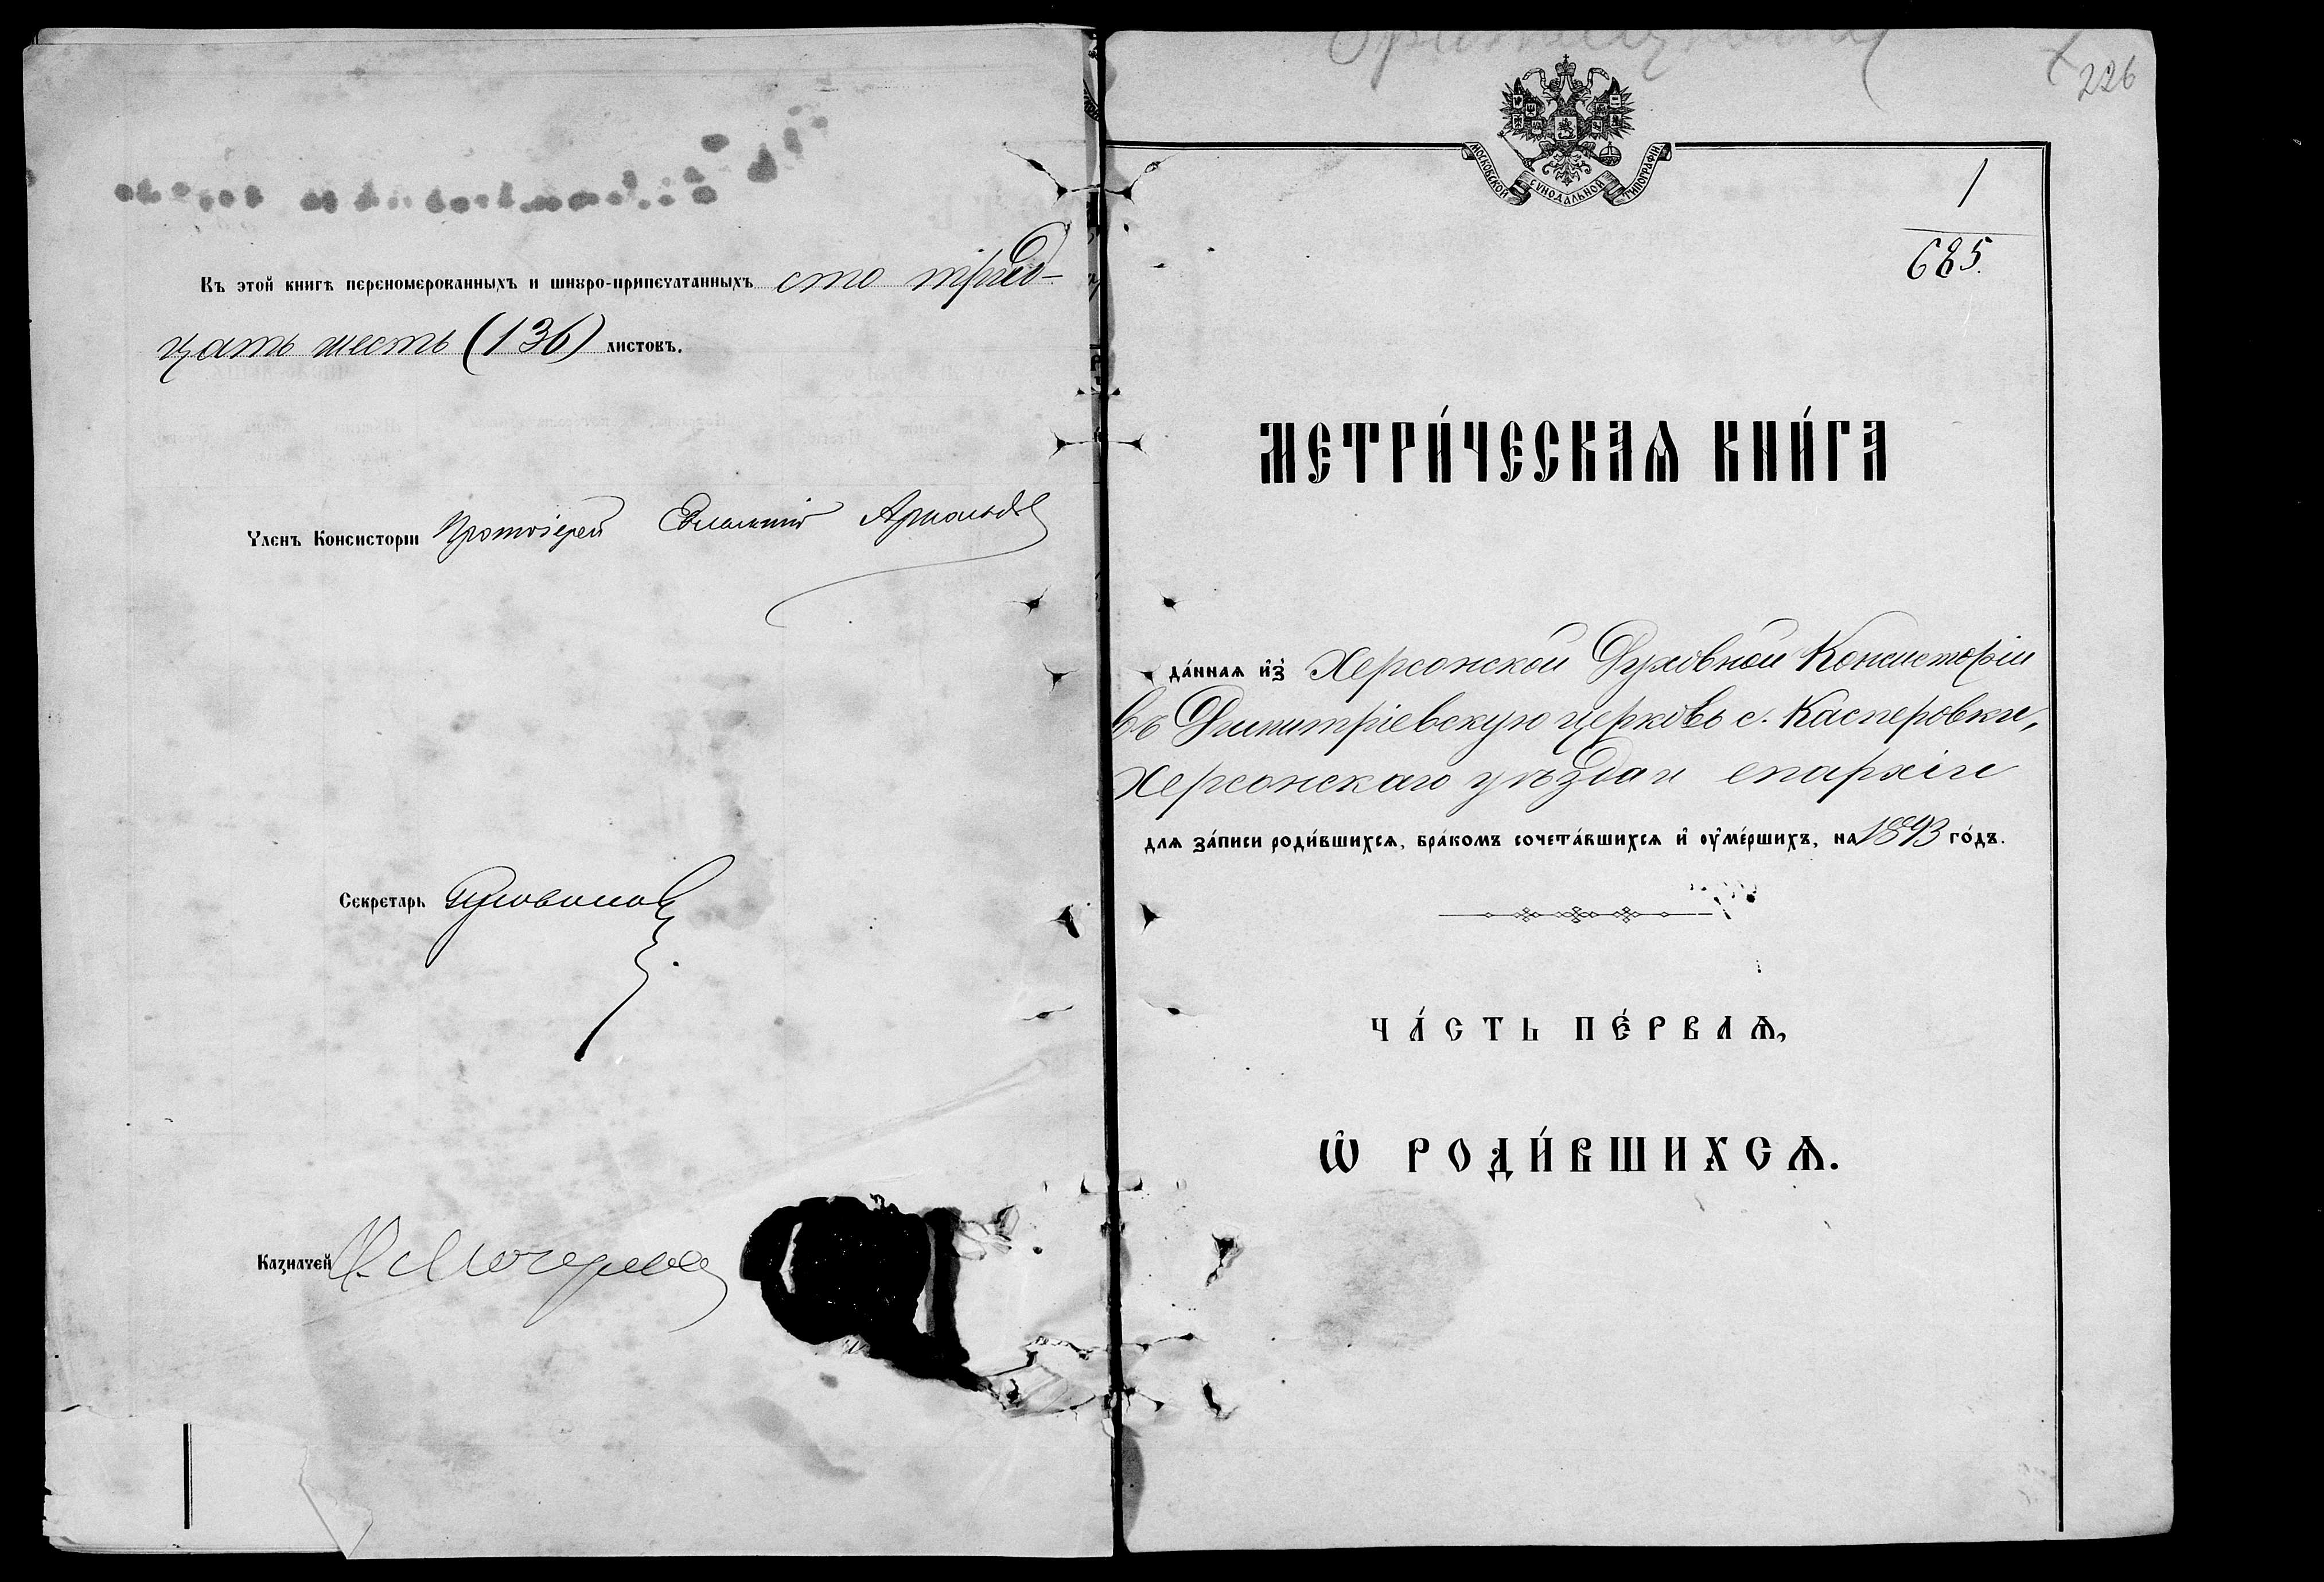 Въ этой книгѣ переномерованныхъ и шнуро-припечатанныхъ сто трид-
цать шесть (136) листовъ.
Членъ Консисторіи Протоіерей Евлампій Арнольдовъ
Секретарь
Казначей
226
МОСКОВСКОЙ СѴНОДАЛЬНОЙ ТИПОГРАФІИ.
1
685.
МЕТРИ́ЧЕСКАѦ КНИ́ГА
да́ннаѧ и҆з̾ Херсонской Духовной Консисторіи
въ Димитріевскую церковь с. Касперовки,
Херсонскаго уѣзда и епархіи
длѧ за́писи роди́вшихсѧ, бра́комъ сочета́вшихсѧ и҆ оу҆ме́ршихъ, на 1893 го́дъ.
ЧА́СТЬ ПЕ́РВАѦ,
Ѽ РОДИ́ВШИХСѦ.